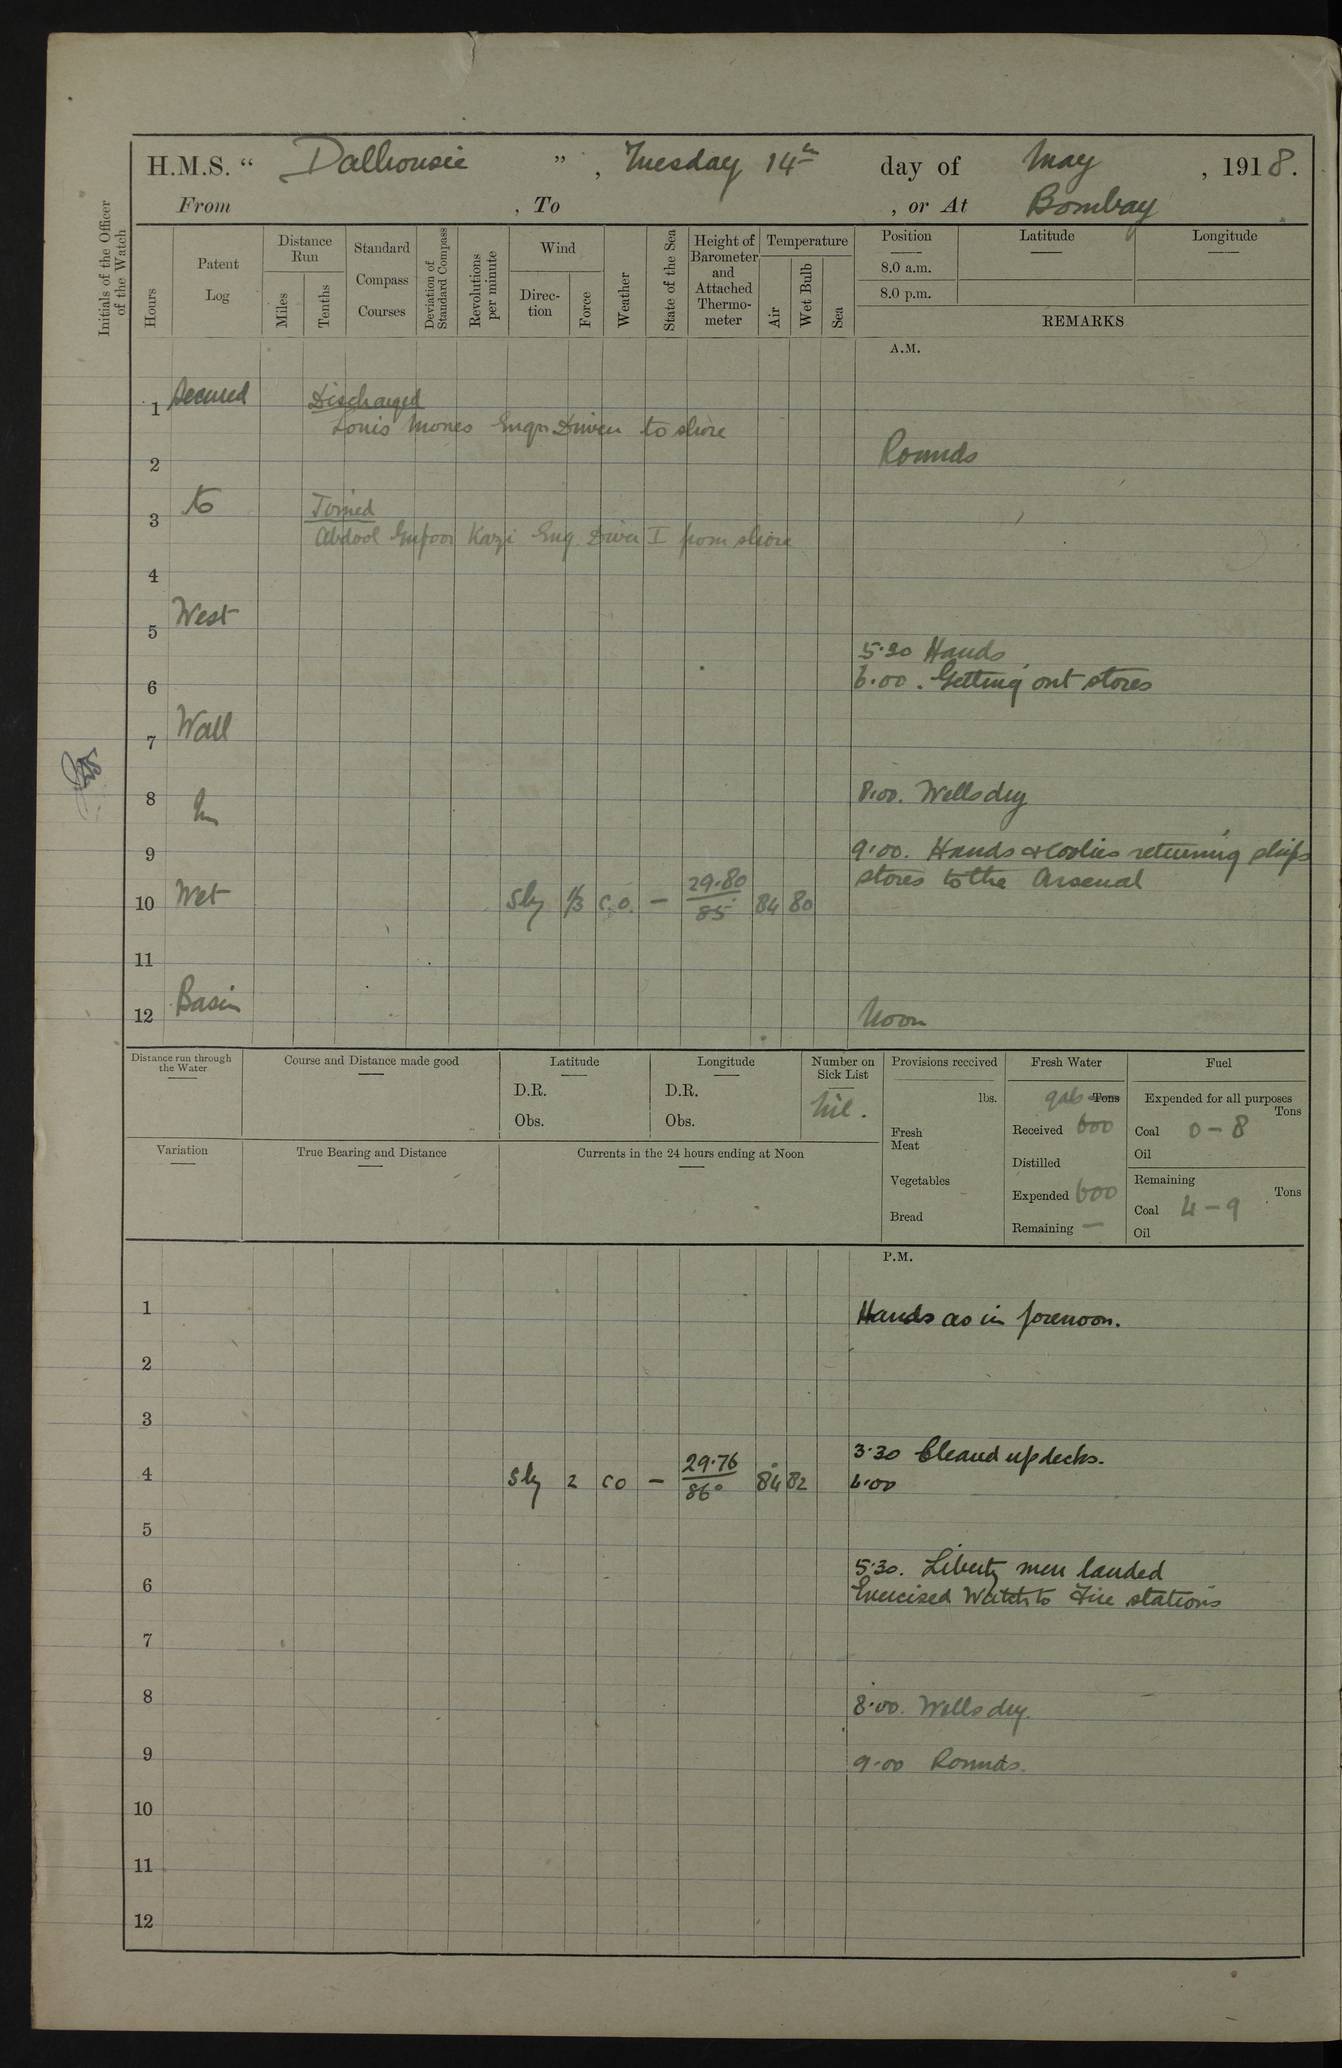 H.M.S. “ Dalhousie ”, Tuesday 14th day of May, 1918.
From , To , or At Bombay
Initials of the Officer of the Watch
Hours
Patent Log
Distance Run
Miles
Tenths
Standard Compass Courses
Deviation of Standard Compass
Revolutions per minute
Wind
Direction
Force
Weather
State of the Sea
Height of Barometer and Attached Thermometer
Temperature
Air
Wet Bulb
Sea
Position
Latitude
Longitude
8.0 a.m.
8.0 p.m.
REMARKS
A.M.
1 Secured Discharged
Louis Mones Engn Driver to shore
2 Rounds
3 to Joined
Abdool Gufoor Kazi Eng Driver I from shore
4
5 West
5.30 Hands
6 6.00. Getting out stores
7 Wall
8 In 8.00. Wells dry
9 9.00. Hands & Coolies returning ships
stores to the Arsenal
10 Wet Sly 1/3 c.o. — 29.80 85 84 80
11
12 Basin Noon
Distance run through the Water
Course and Distance made good
Latitude
D.R.
Obs.
Longitude
D.R.
Obs.
Number on Sick List
Nil.
Provisions received
lbs.
Fresh Meat
Vegetables
Bread
Fresh Water
gals Tons
Received 600
Distilled
Expended 600
Remaining —
Fuel
Expended for all purposes
Tons
Coal 0 - 8
Oil
Remaining
Tons
Coal 4 - 9
Oil
Variation
True Bearing and Distance
Currents in the 24 hours ending at Noon
P.M.
1 Hands as in forenoon.
2
3
3.30 Cleaned up decks.
4 Sly 2 co — 29.76 86° 84 82 6.00
5
5.30. Liberty men landed
6 Exercised Watch to Fire stations
7
8 8.00. Wells dry.
9 9.00 Rounds.
10
11
12